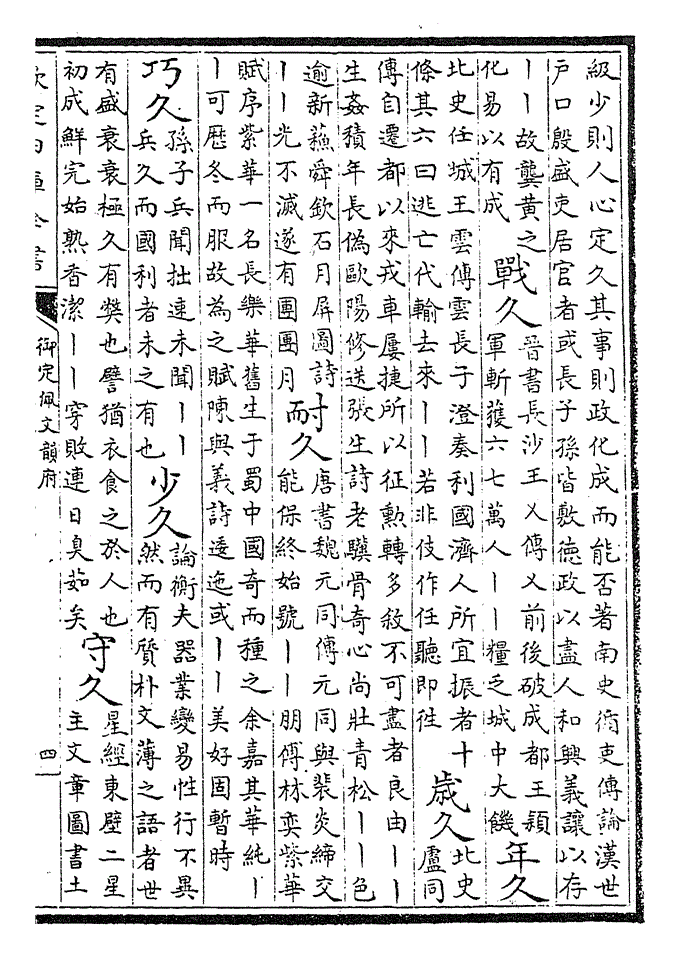 級少則人心定久其事則政化成而能否著南史循吏傳論漢世
戶口殷盛吏居官者或長子孫皆敷德政以盡人和興義讓以存
丨丨故龔黃之
化易以有成
戰久
晉書長沙王乂傳乂前後破成都王穎
軍斬獲六七萬人丨丨糧乏城中大饑
年久
北史任城王雲傳雲長子澄奏利國濟人所宜振者十
條其六曰逃亡代輸去來丨丨若非伎作任聽即徃
歲久
北史
盧同
傳自遷都以來戎車屢捷所以征勲轉多敘不可盡者良由丨丨
生姦積年長偽歐陽修送張生詩老驥骨奇心尚壯青松丨丨色
逾新蘓舜欽石月屏圖詩
丨丨光不滅遂有團團月
耐久
唐書魏元同傳元同與裴炎締交
能保終始號丨丨朋傅林奕紫華
賦序紫華一名長樂華舊生于蜀中國奇而種之余嘉其華純丨
丨可歴冬而服故為之賦陳與義詩逶迤或丨丨美好固暫時
巧久
孫子兵聞拙速未聞丨丨
兵久而國利者未之有也
少久
論衡夫器業變易性行不異
然而有質朴文薄之語者世
有盛衰衰極久有獘也譬猶衣食之於人也
初成鮮完始熟香潔丨丨穿敗連日臭茹矣
守久
星經東壁二星
主文章圖書土
欽定四庫全書
御定佩文韻府
四